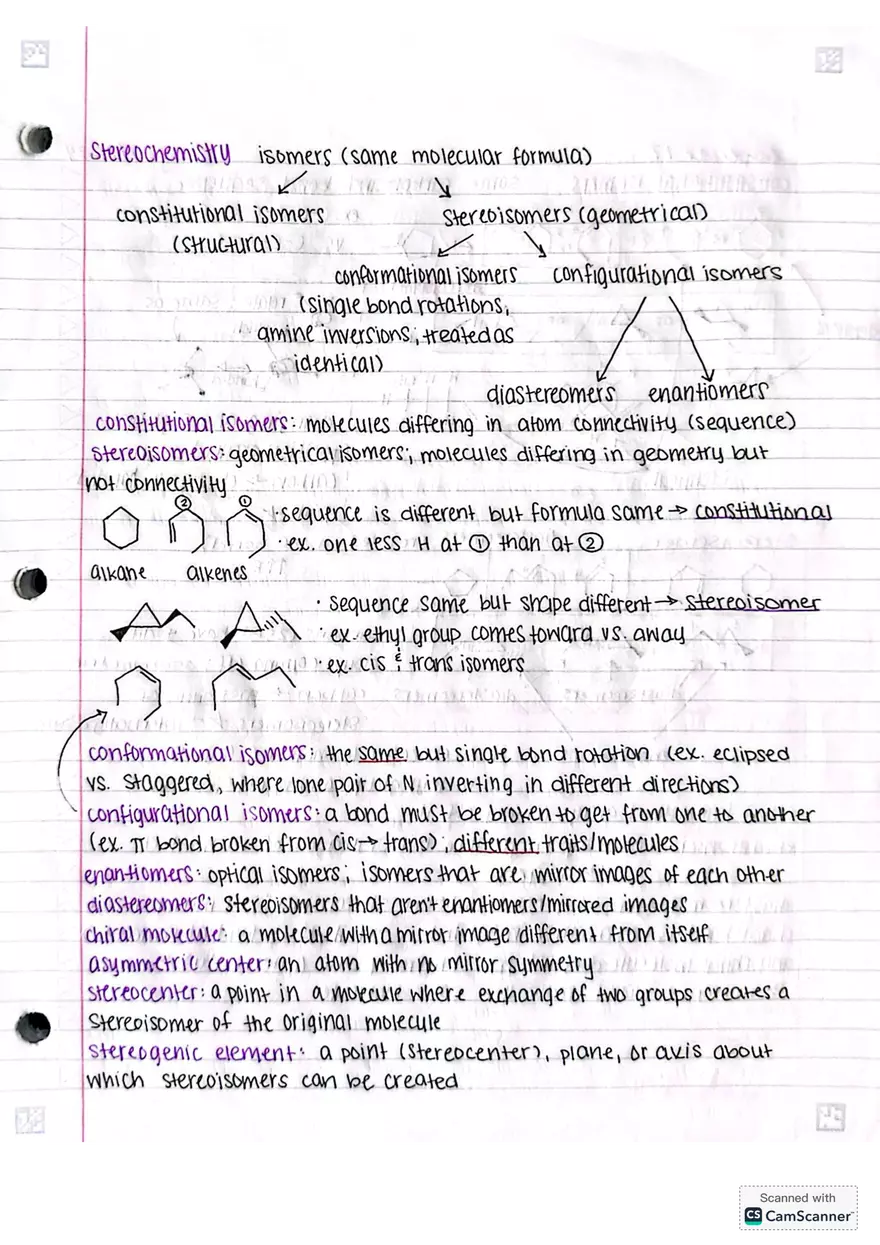 Stereochemistry isomers (same molecular formula)
constitutional isomers stereoisomers (geometrical)
(structural)
conformational isomers configurational isomers
(single bond rotations,
amine inversions; treated as
identical)
diastereomers enantiomers
constitutional isomers: molecules differing in atom connectivity (sequence)
stereoisomers: geometrical isomers; molecules differing in geometry but
not connectivity
② ① · sequence is different but formula same → constitutional
· ex. one less H at ① than at ②
alkane alkenes
· sequence same but shape different → stereoisomer
· ex. ethyl group comes toward vs. away
· ex. cis & trans isomers
conformational isomers: the same but single bond rotation (ex. eclipsed
vs. staggered, where lone pair of N inverting in different directions)
configurational isomers: a bond must be broken to get from one to another
(ex. π bond broken from cis → trans); different traits/molecules
enantiomers: optical isomers; isomers that are mirror images of each other
diastereomers: stereoisomers that aren't enantiomers/mirrored images
chiral molecule: a molecule with a mirror image different from itself
asymmetric center: an atom with no mirror symmetry
stereocenter: a point in a molecule where exchange of two groups creates a
stereoisomer of the original molecule
stereogenic element: a point (stereocenter), plane, or axis about
which stereoisomers can be created
Scanned with
CS CamScanner